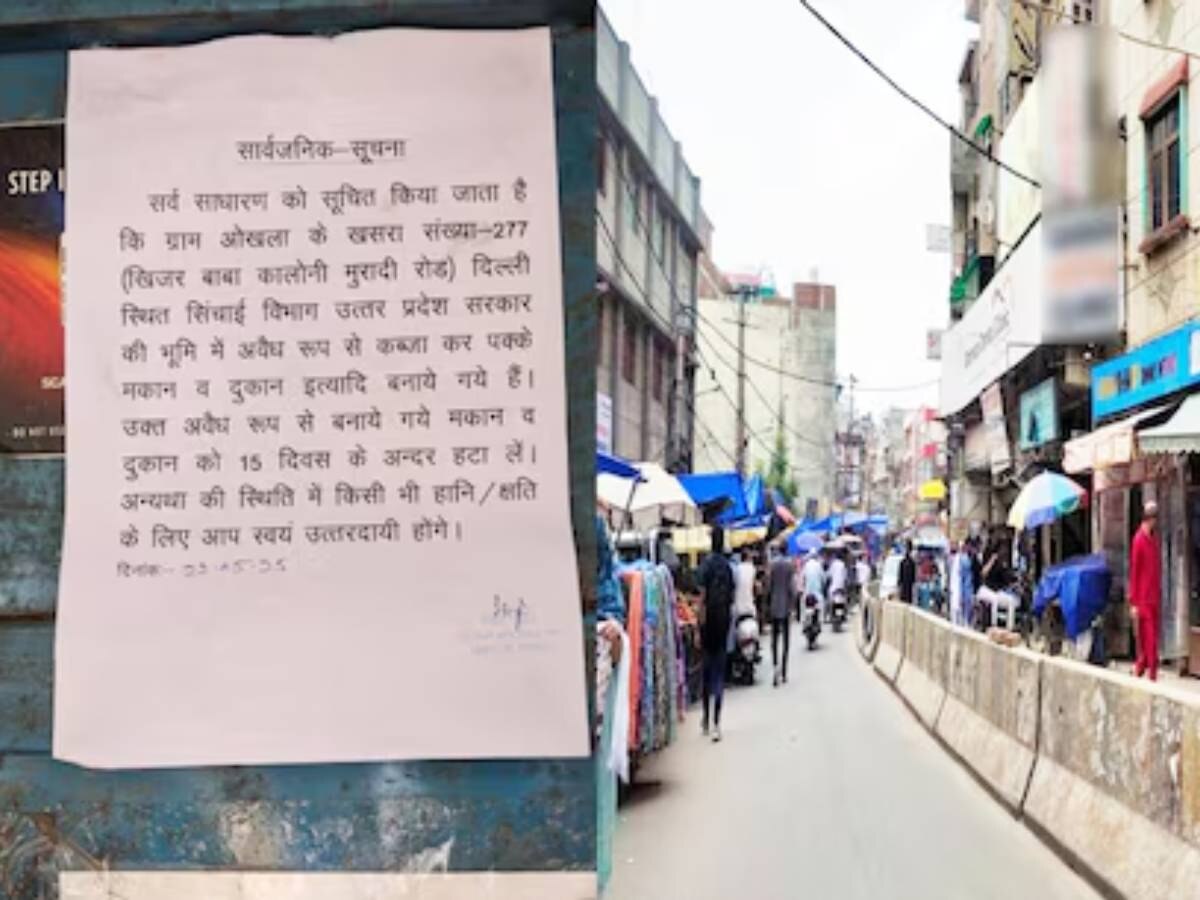 सार्वजनिक–सूचना
सर्व साधारण को सूचित किया जाता है
कि ग्राम ओखला के खसरा संख्या–277
(खिजर बाबा कालोनी मुरादी रोड) दिल्ली
स्थित सिंचाई विभाग उत्तर प्रदेश सरकार
की भूमि में अवैध रूप से कब्जा कर पक्के
मकान व दुकान इत्यादि बनाये गये हैं।
उक्त अवैध रूप से बनाये गये मकान व
दुकान को 15 दिवस के अन्दर हटा लें।
अन्यथा की स्थिति में किसी भी हानि/क्षति
के लिए आप स्वयं उत्तरदायी होंगे।
दिनांक–
STEP